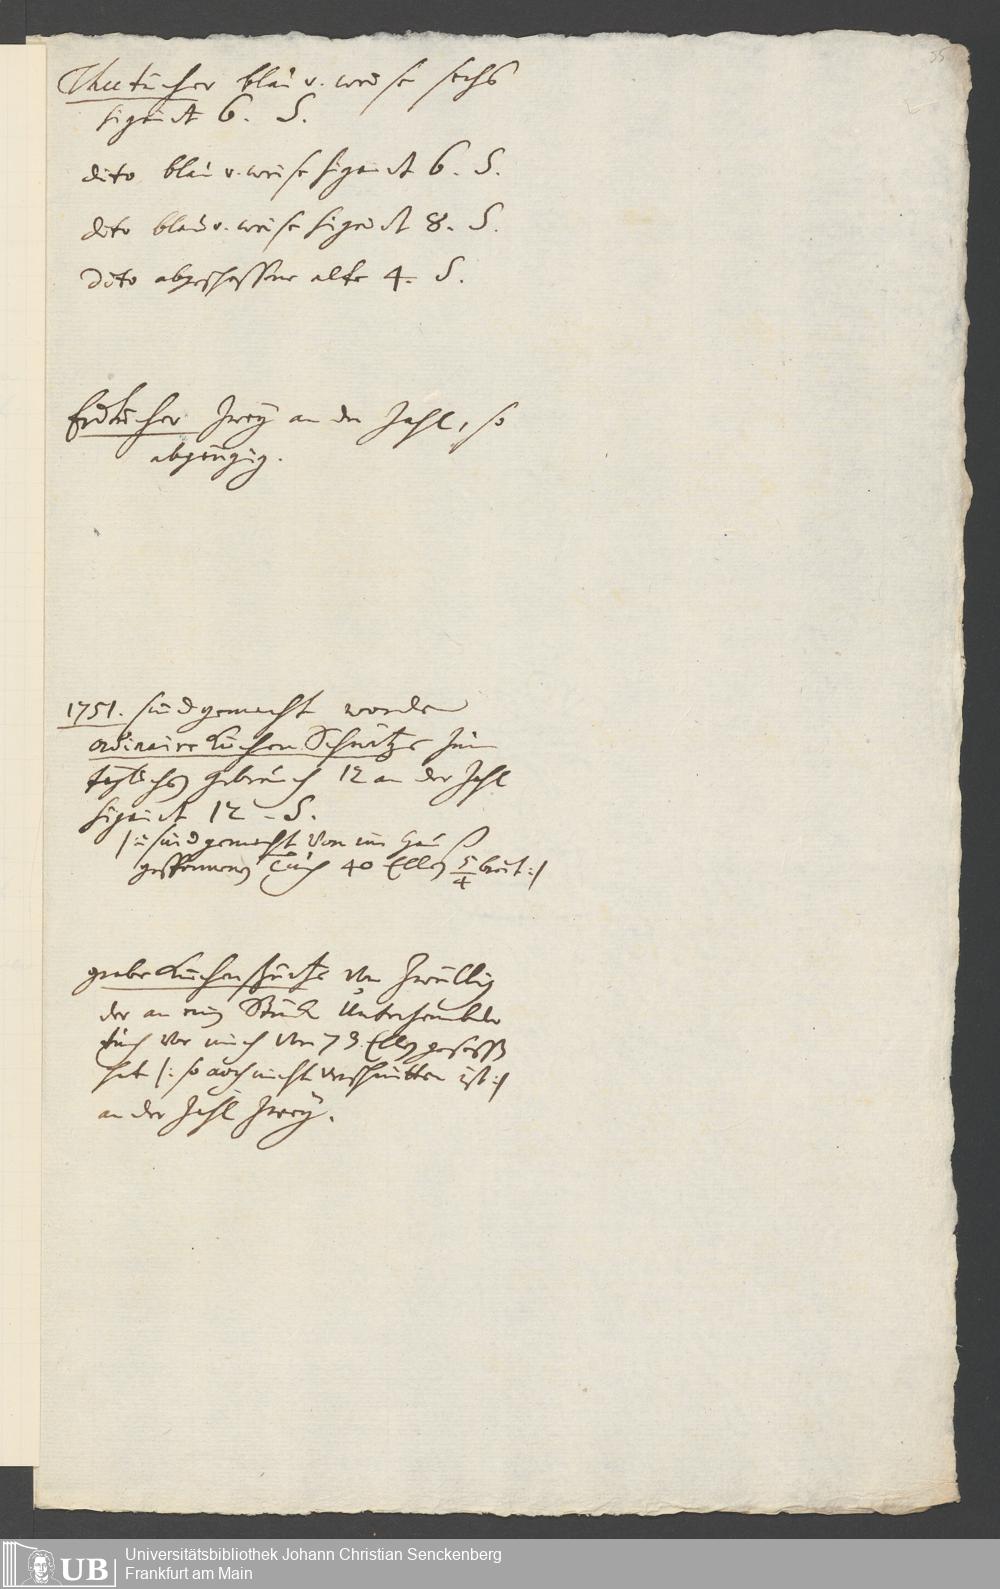 55
Theetücher blau u. weise sechs
signirt 6. S.
dito blau u. weise signirt 6. S.
dito blau u. weise signirt 8. S.
Dito abgeschossene alte 4. S.
tücher zwey an der Zahl, so
abgängig.
1751. sind gemacht worden
ordinaire Küchen Schürtze zum
täglichen gebrauch 12 an der Zahl
signirt 12 - S.
/: sind gemacht von im Hauß
gesponnenen Tuch 40 Ellen 5/4 breit :/
grobe Küchenschürtze von Zwillig
der an ein Stück
tuch vor mich von 73. Ellen
hat /: so noch nicht verschnitten ist :/
an der Zahl zwey.
UB
Universitätsbibliothek Johann Christian Senckenberg
Frankfurt am Main